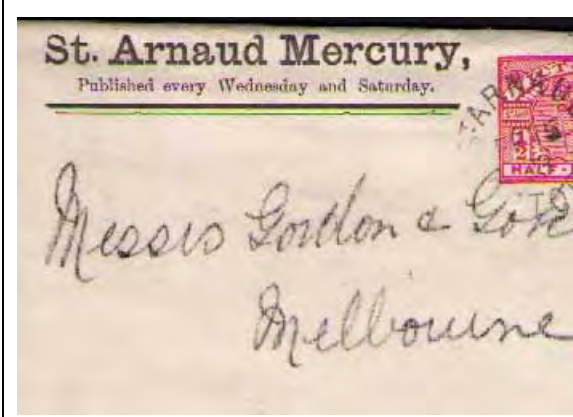 St. Arnaud Mercury,
Published every Wednesday and Saturday.
ARNAU
1/2
HALF-
Messrs Gordon & Got
Melbourne